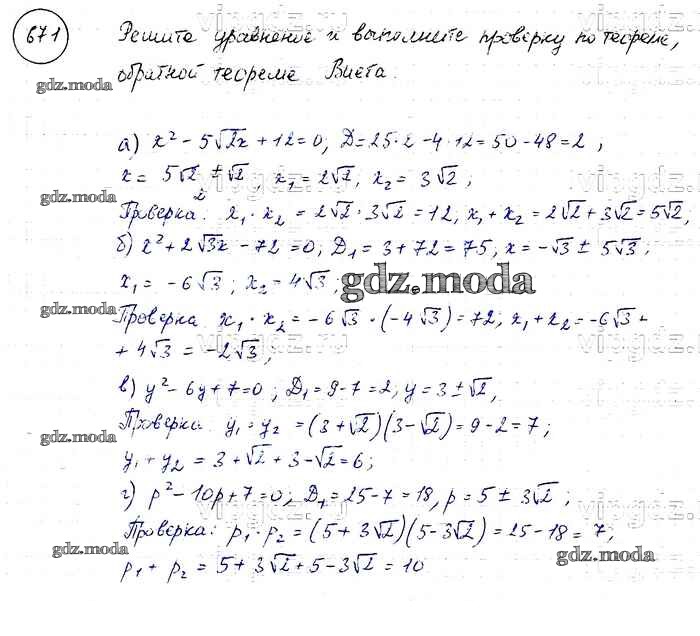 671 Решите уравнение и выполните проверку по теореме,
обратной теореме Виета.
а) x² - 5√2x + 12 = 0; D = 25·2 - 4·12 = 50 - 48 = 2;
x = (5√2 ± √2)/2, x₁ = 2√2, x₂ = 3√2;
Проверка: x₁ · x₂ = 2√2 · 3√2 = 12, x₁ + x₂ = 2√2 + 3√2 = 5√2,
б) x² + 2√3x - 72 = 0; D₁ = 3 + 72 = 75, x = -√3 ± 5√3;
x₁ = -6√3; x₂ = 4√3;
Проверка x₁ · x₂ = -6√3 · (-4√3) = 72, x₁ + x₂ = -6√3 +
+ 4√3 = -2√3;
в) y² - 6y + 7 = 0; D₁ = 9 - 7 = 2, y = 3 ± √2,
Проверка: y₁ = y₂ = (3 + √2)(3 - √2) = 9 - 2 = 7;
y₁ + y₂ = 3 + √2 + 3 - √2 = 6;
г) p² - 10p + 7 = 0; D₁ = 25 - 7 = 18, p = 5 ± 3√2;
Проверка: p₁ · p₂ = (5 + 3√2)(5 - 3√2) = 25 - 18 = 7;
p₁ + p₂ = 5 + 3√2 + 5 - 3√2 = 10
gdz.moda
gdz.moda
gdz.moda
gdz.moda
gdz.moda
gdz.moda
gdz.moda
gdz.moda
gdz.moda